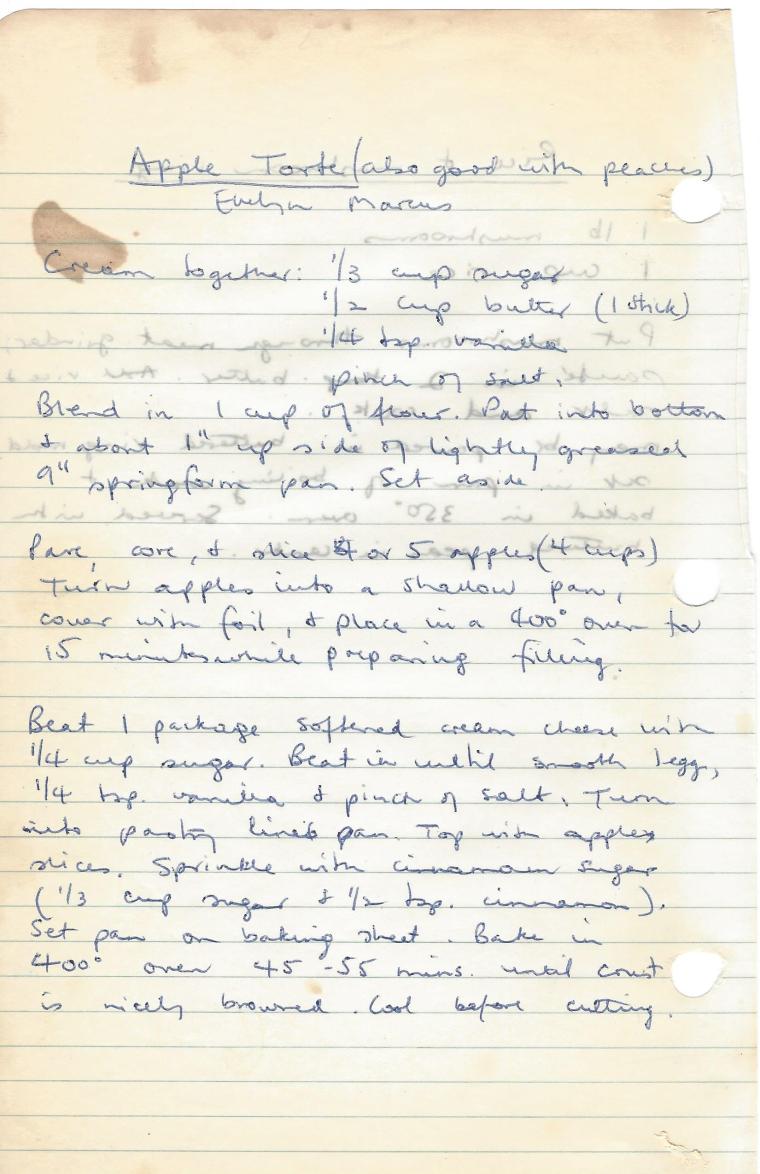 Apple Torte (also good with peaches)
Evelyn Marcus
Cream together: 1/3 cup sugar
1/2 cup butter (1 stick)
1/4 tsp. vanilla
pinch of salt.
Blend in 1 cup of flour. Pat into bottom
& about 1" up side of lightly greased
9" springform pan. Set aside.
Pare, core, & slice 4 or 5 apples (4 cups)
Turn apples into a shallow pan,
cover with foil, & place in a 400° oven for
15 minutes while preparing filling.
Beat 1 package softened cream cheese with
1/4 cup sugar. Beat in until smooth 1 egg,
1/4 tsp. vanilla & pinch of salt. Turn
into pastry lined pan. Top with apple
slices. Sprinkle with cinnamon sugar
(1/3 cup sugar & 1/2 tsp. cinnamon).
Set pan on baking sheet. Bake in
400° oven 45-55 mins. until crust
is nicely browned. Cool before cutting.